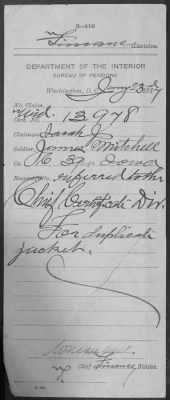 3-416
Finance Division
DEPARTMENT OF THE INTERIOR
BUREAU OF PENSIONS
Washington, D. C. Jany 23d, 1917
No. Claim,
Cert. No. 13978
Claimant, Sarah J.
Soldier, James Mitchell
Co. K, 3 Iowa
Respectfully referred to the
Chief Certificate Div.
For duplicate
jacket.
Chief Finance Division